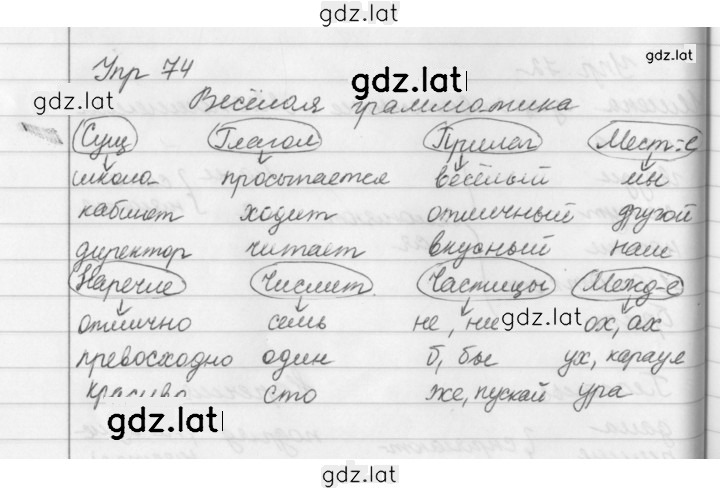 gdz.lat
Упр 74
gdz.lat
gdz.lat
gdz.lat
Весёлая грамматика
Сущ Глагол Прилаг Мест-е
школа просыпается весёлый мы
кабинет ходит отличный другой
директор читает вкусный наш
Наречие Числит. Частицы Межд-е
отлично семь не, ни ох, ах
gdz.lat
превосходно один б, бы ух, караул
красиво сто же, пускай ура
gdz.lat
gdz.lat